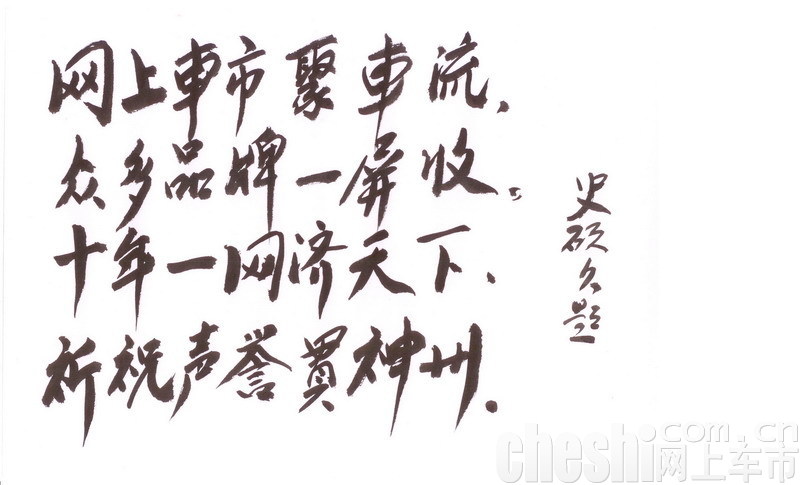 网上車市聚車流、
众多品牌一屏收。
十年一网济天下、
祈祝声誉贯神州.
史硕久題
cheshi.com.cn
网上车市